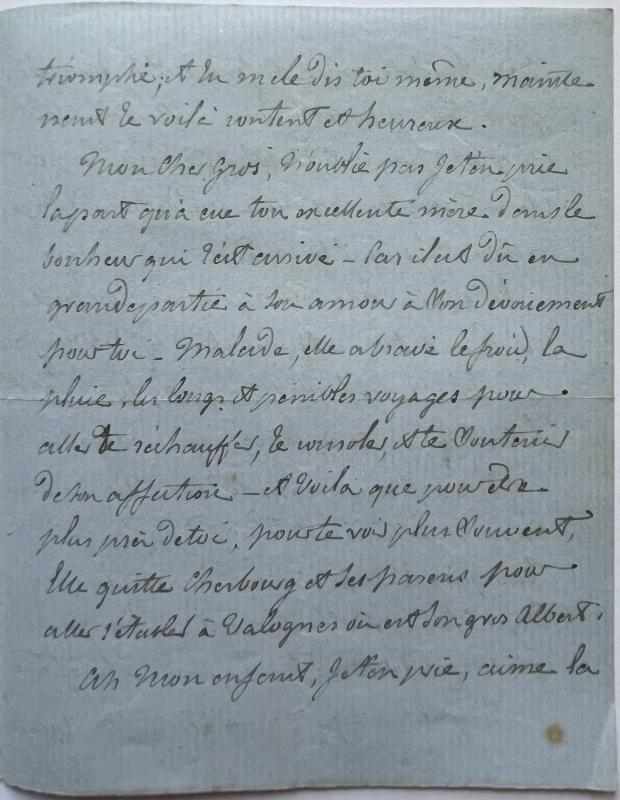 triomphé, et tu me le dis toi même, mainte
nant te voilà content et heureux.
Mon cher gros, n'oublie pas je t'en prie
la part qu'a eue ton excellente mère dans le
bonheur qui t'est arrivé - Car il est dû en
grande partie à son amour à son dévouement
pour toi - Malade, elle a bravé le froid, la
pluie, les longs et penibles voyages pour
aller te réchauffer, te consoler, et te soutenir
de son affection - et voilà que pour être
plus près de toi, pour te voir plus souvent,
Elle quitte Cherbourg et ses parens pour
aller s'établir à Valognes où est son gros Albert.
Ah mon enfant, je t'en prie, aime la